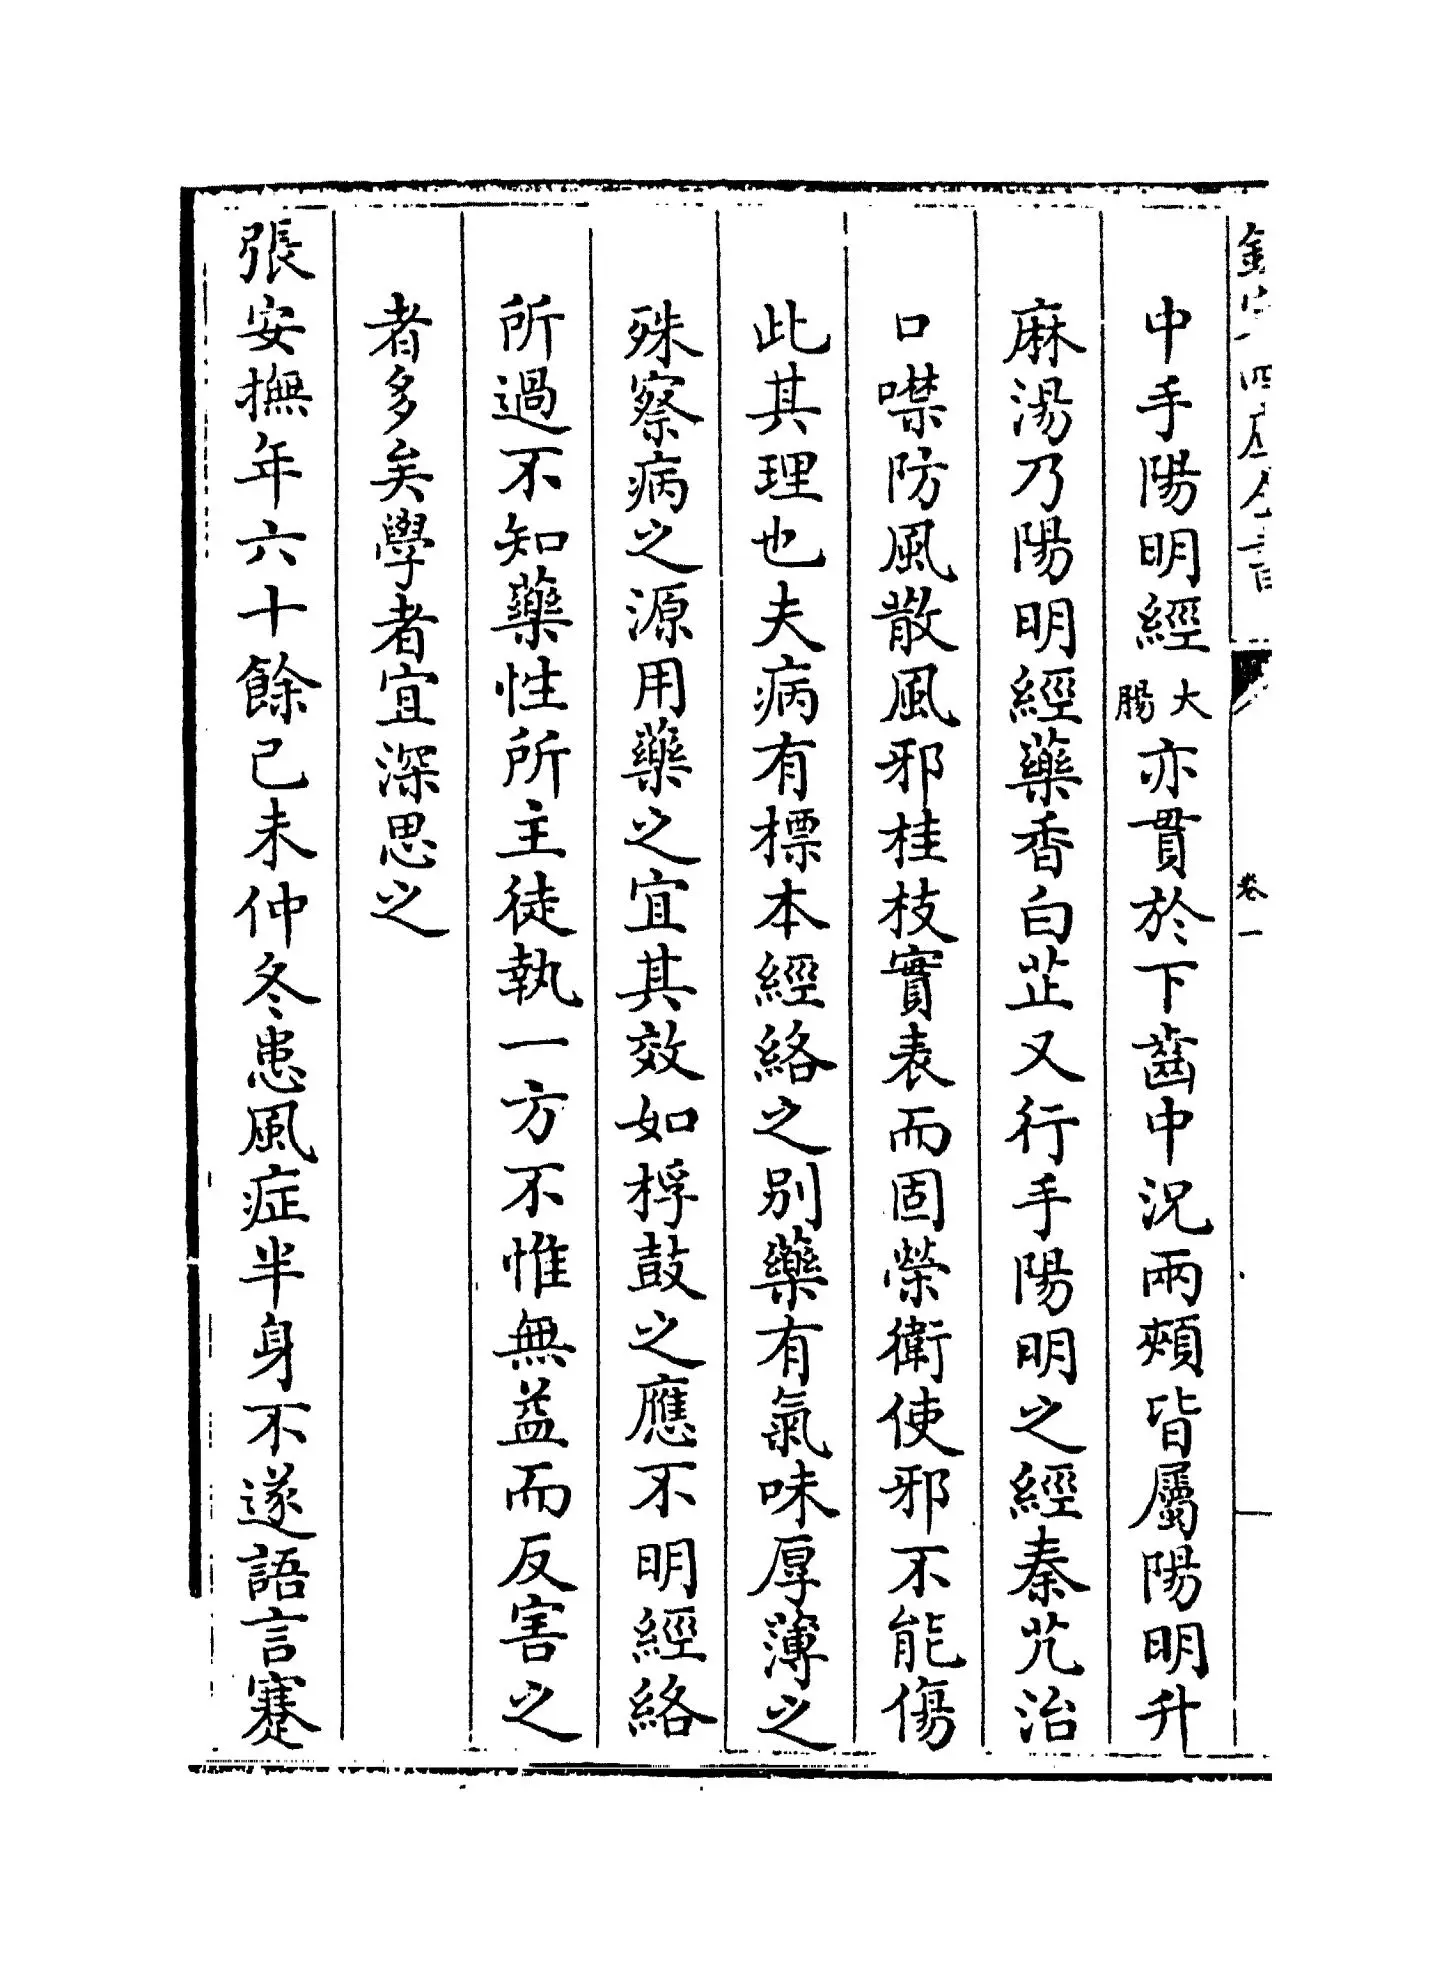 欽定四庫全書
卷一
中手陽明經大腸亦貫於下齒中況兩頰皆屬陽明升
麻湯乃陽明經藥香白芷又行手陽明之經秦艽治
口噤防風散風邪桂枝實表而固榮衛使邪不能傷
此其理也夫病有標本經絡之別藥有氣味厚薄之
殊察病之源用藥之宜其效如桴鼓之應不明經絡
所過不知藥性所主徒執一方不惟無益而反害之
者多矣學者宜深思之
張安撫年六十餘己未仲冬患風症半身不遂語言蹇